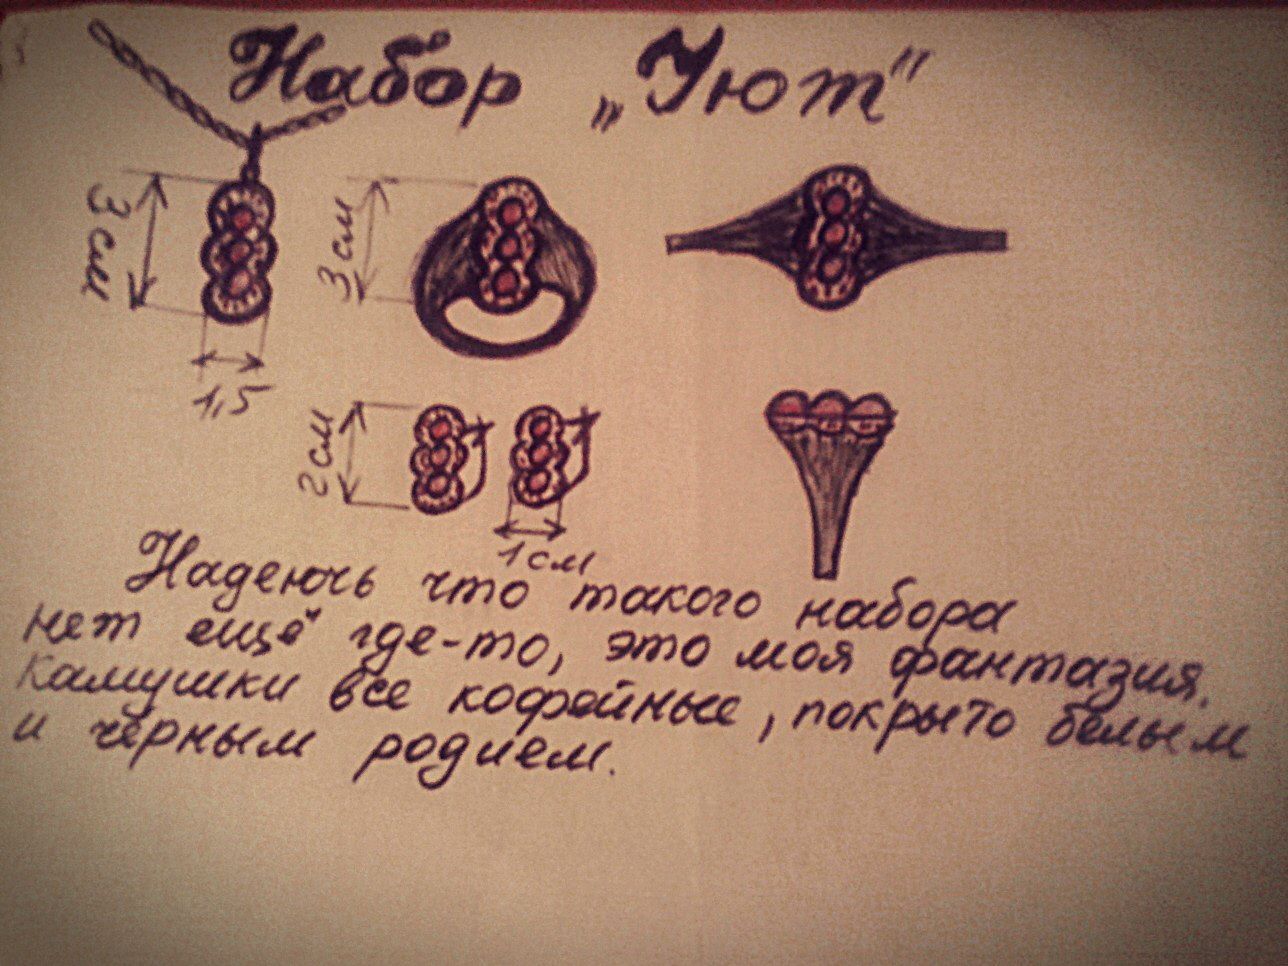 Набор „Уют"
3 см
3 см
1,5
2 см
1 см
Надеюсь что такого набора
нет ещё где-то, это моя фантазия.
Камушки все кофейные, покрыто белым
и чёрным родием.